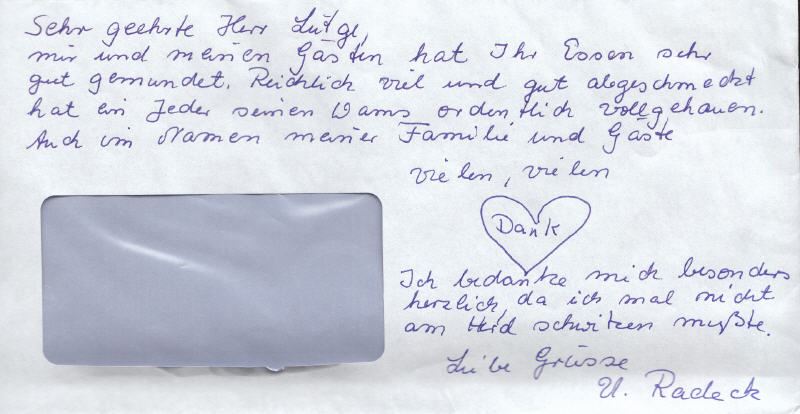 Sehr geehrte Herr Lütge,
mir und meinen Gästen hat Ihr Essen sehr
gut gemundet. Reichlich viel und gut abgeschmeckt
hat ein Jeder seinen Wams ordentlich vollgehauen.
Auch im Namen meiner Familie und Gäste
vielen, vielen
Dank
Ich bedanke mich besonders
herzlich, da ich mal nicht
am Herd schwitzen mußte.
Liebe Grüsse
U. Radeck